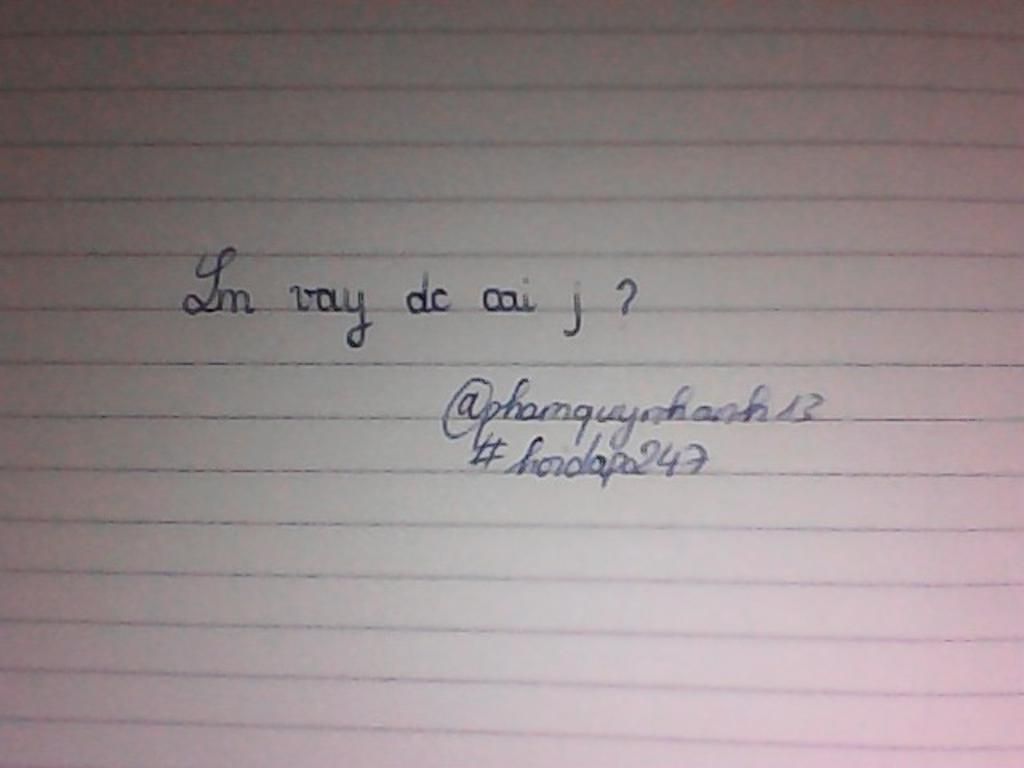 Lm vay dc cai j ?
@phamquynhanh13
#hoidap247